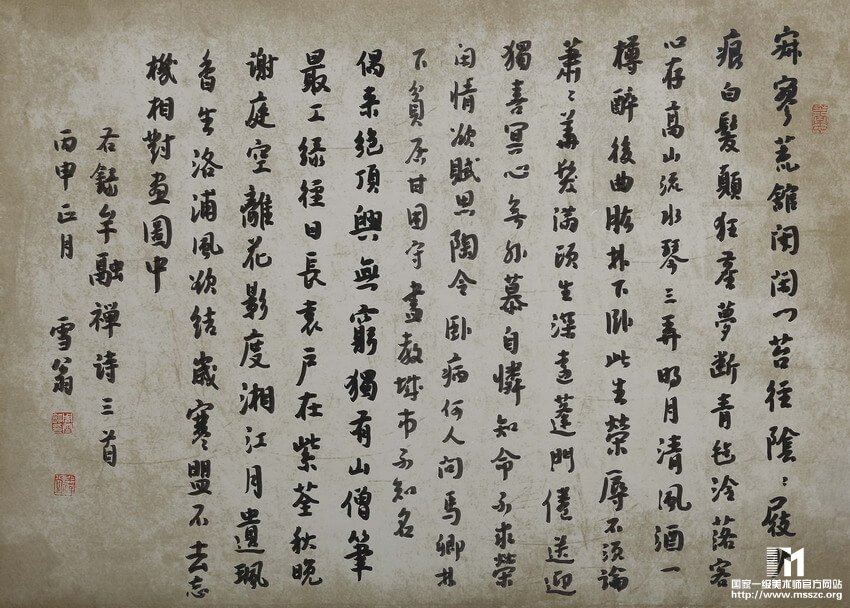 寂寥荒館閉閑門苔徑陰〻屐少
痕白髮顛狂塵夢斷青氈冷落客
心存高山流水琴三弄明月清風酒一
樽醉後曲肱林下卧此生榮辱不須論
蕭〻華髮滿頭生深遠蓬門倦送迎
獨喜冥心無外慕自憐知命不求榮
閑情欲賦思陶令卧病何人問馬卿林
下貧居甘困守盡教城市不知名
偶來絶頂興無窮獨有山僧筆
最工綠徑日長袁户在紫荃秋晚
謝庭空離花影度湘江月遺珮
香生洛浦風欲結歲寒盟不去忘
機相對畫圖中
右録牟融禪詩三首
丙申正月 雪翁
国家一级美术师官方网站
http://www.msszc.org